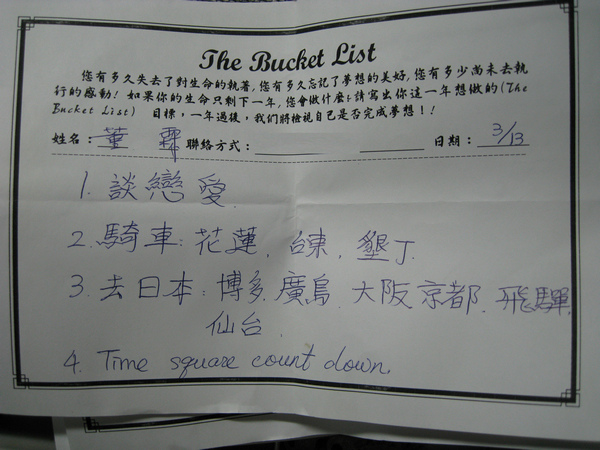 The Bucket List
您有多久失去了對生命的執著,您有多久忘記了夢想的美好,您有多少尚未去執
行的感動! 如果你的生命只剩下一年,您會做什麼?請寫出你這一年想做的(The
Bucket List) 目標,一年過後,我們將檢視自己是否完成夢想!!
姓名: 董 霈 聯絡方式: 日期: 3/13
1. 談戀愛.
2. 騎車: 花蓮, 台東, 墾丁.
3. 去日本: 博多, 廣島, 大阪, 京都, 飛驒,
仙台.
4. Time square count down.